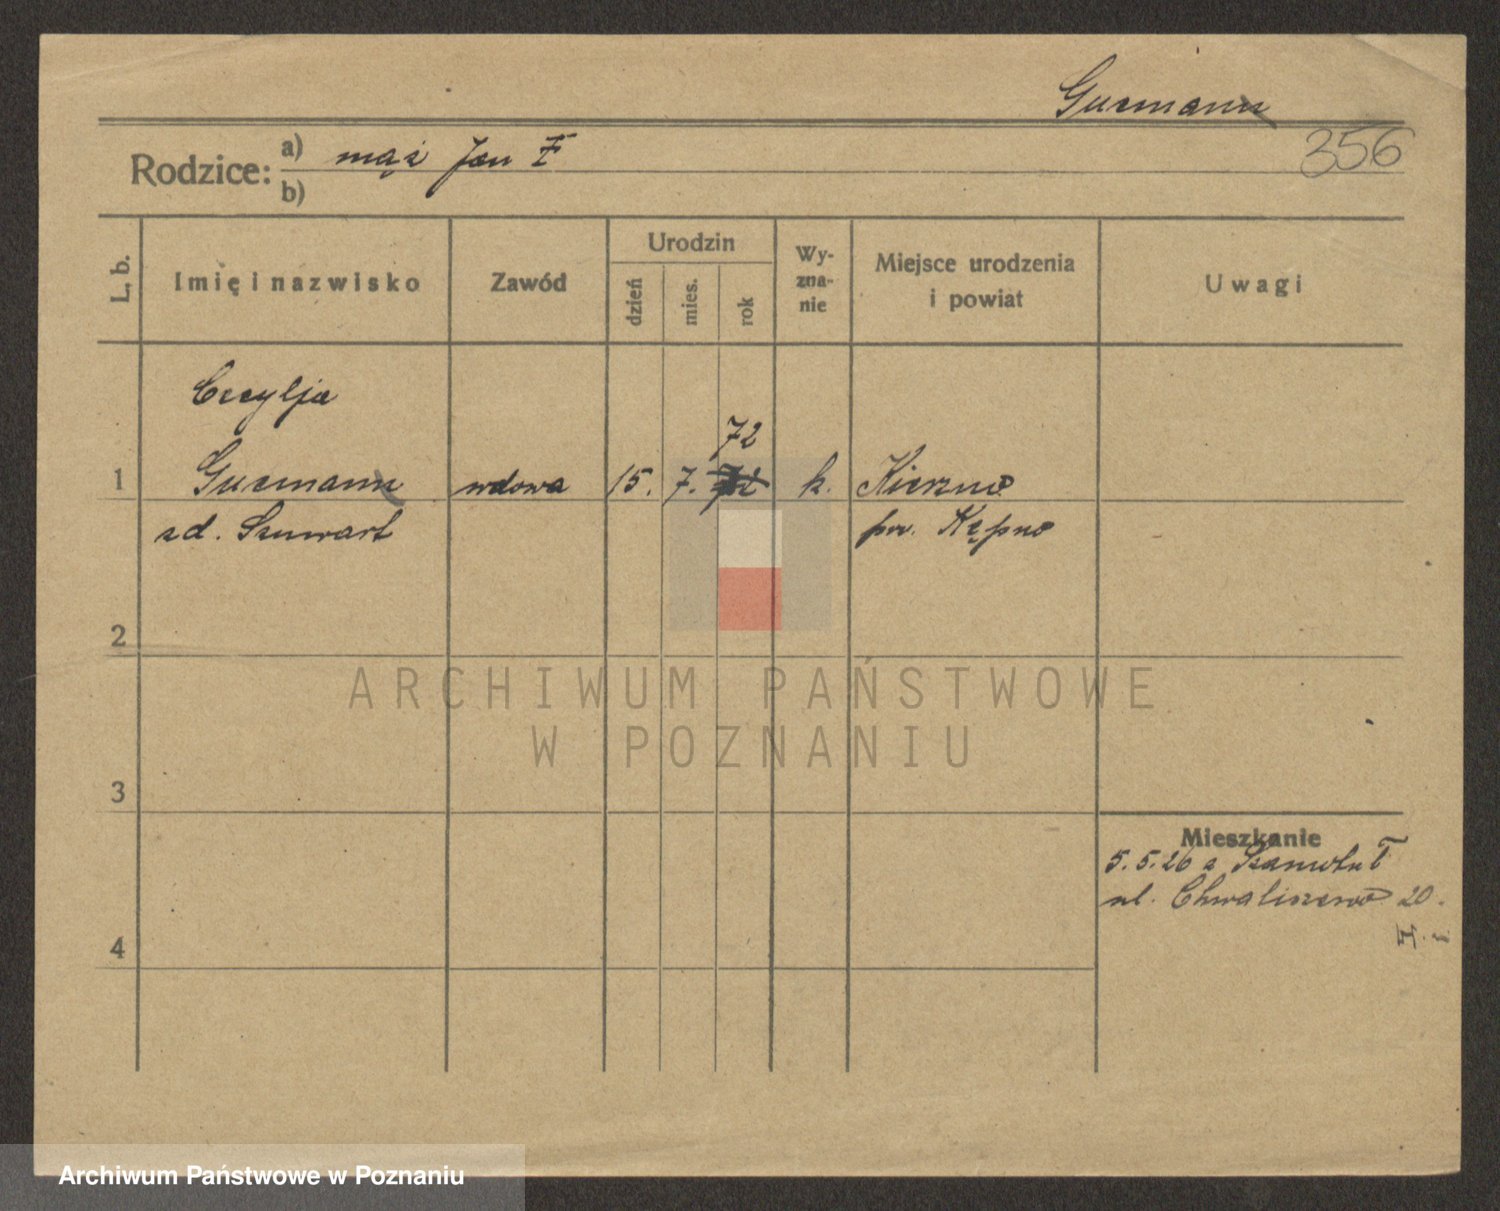 Gurmann
356
Rodzice: a) mąż Jan Ŧ
b)
L. b.
Imię i nazwisko
Zawód
Urodzin
dzień
mies.
rok
Wy-
zna-
nie
Miejsce urodzenia
i powiat
Uwagi
Cecylja
72
1 Gurmann wdowa 15. 7. k. Kierzno
zd. Szuwart pw. Kępno
2
ARCHIWUM PAŃSTWOWE
W POZNANIU
3
Mieszkanie
5.5.26 z
ul. Chwaliszewo 20.
4
Archiwum Państwowe w Poznaniu